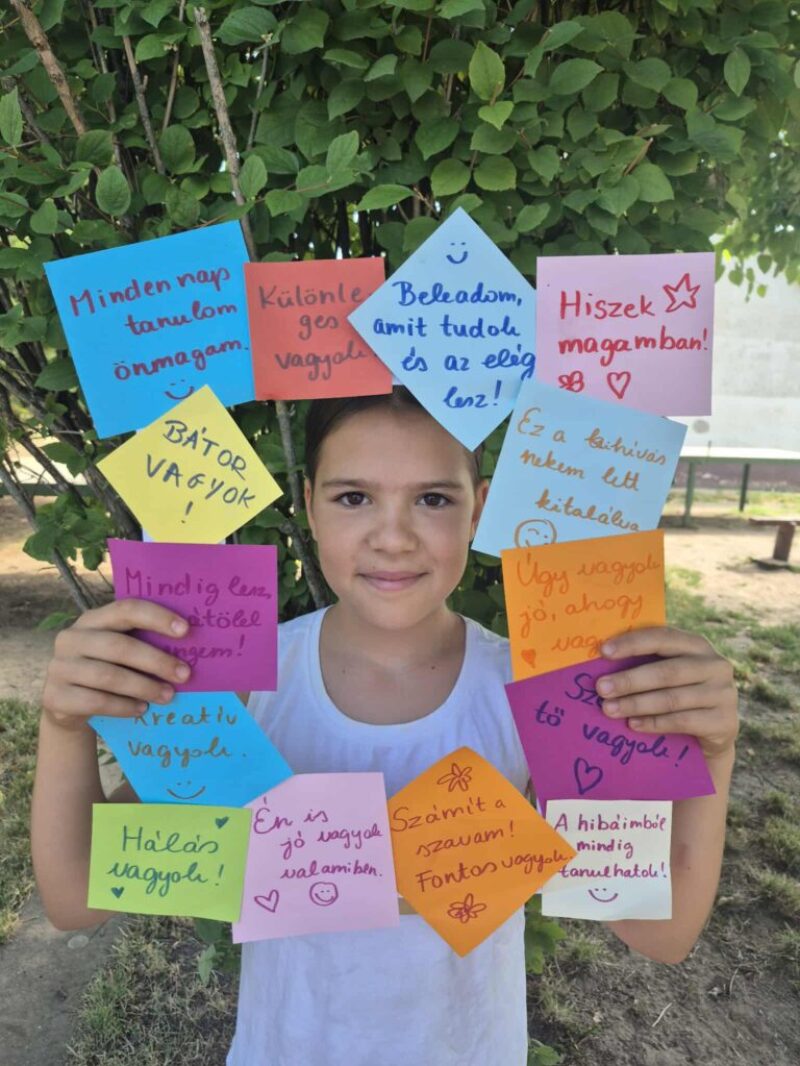 Minden nap
tanulom
önmagam.
Különle
ges
vagyok.
Beleadom,
amit tudok
és az elég
lesz!
Hiszek
magamban!
BÁTOR
VAGYOK
!
Ez a kihívás
nekem lett
kitalálva
Mindig lesz,
engem!
Úgy vagyok
jó, ahogy
Kreatív
vagyok.
tő vagyok!
Hálás
vagyok!
Én is
jó vagyok
valamiben.
Számít a
szavam!
Fontos vagyok.
A hibáimból
mindig
tanulhatok!